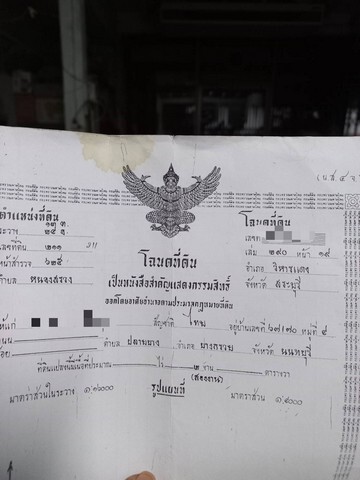 (น.ส.๔ จ.)
ตำแหน่งที่ดิน
โฉนดที่ดิน
ระวาง
เลขที่
เลขที่ดิน ๒๑๑
โฉนดที่ดิน
เล่ม ๒๙๐ หน้า ๑๙
หน้าสำรวจ ๖๒๕
เป็นหนังสือสำคัญแสดงกรรมสิทธิ์
อำเภอ วิหารแดง
ตำบล หนองสรวง
ออกโดยอาศัยอำนาจตามประมวลกฎหมายที่ดิน
จังหวัด สระบุรี
สัญชาติ ไทย อยู่บ้านเลขที่ ๖๗/๗๐ หมู่ที่ ๔
ถนน ตำบล ปลายบาง อำเภอ บางกรวย จังหวัด นนทบุรี
ที่ดินแปลงนี้มีเนื้อที่ประมาณ ไร่ ๒ งาน ตารางวา
(สองงาน)
มาตราส่วนในระวาง
รูปแผนที่
มาตราส่วน